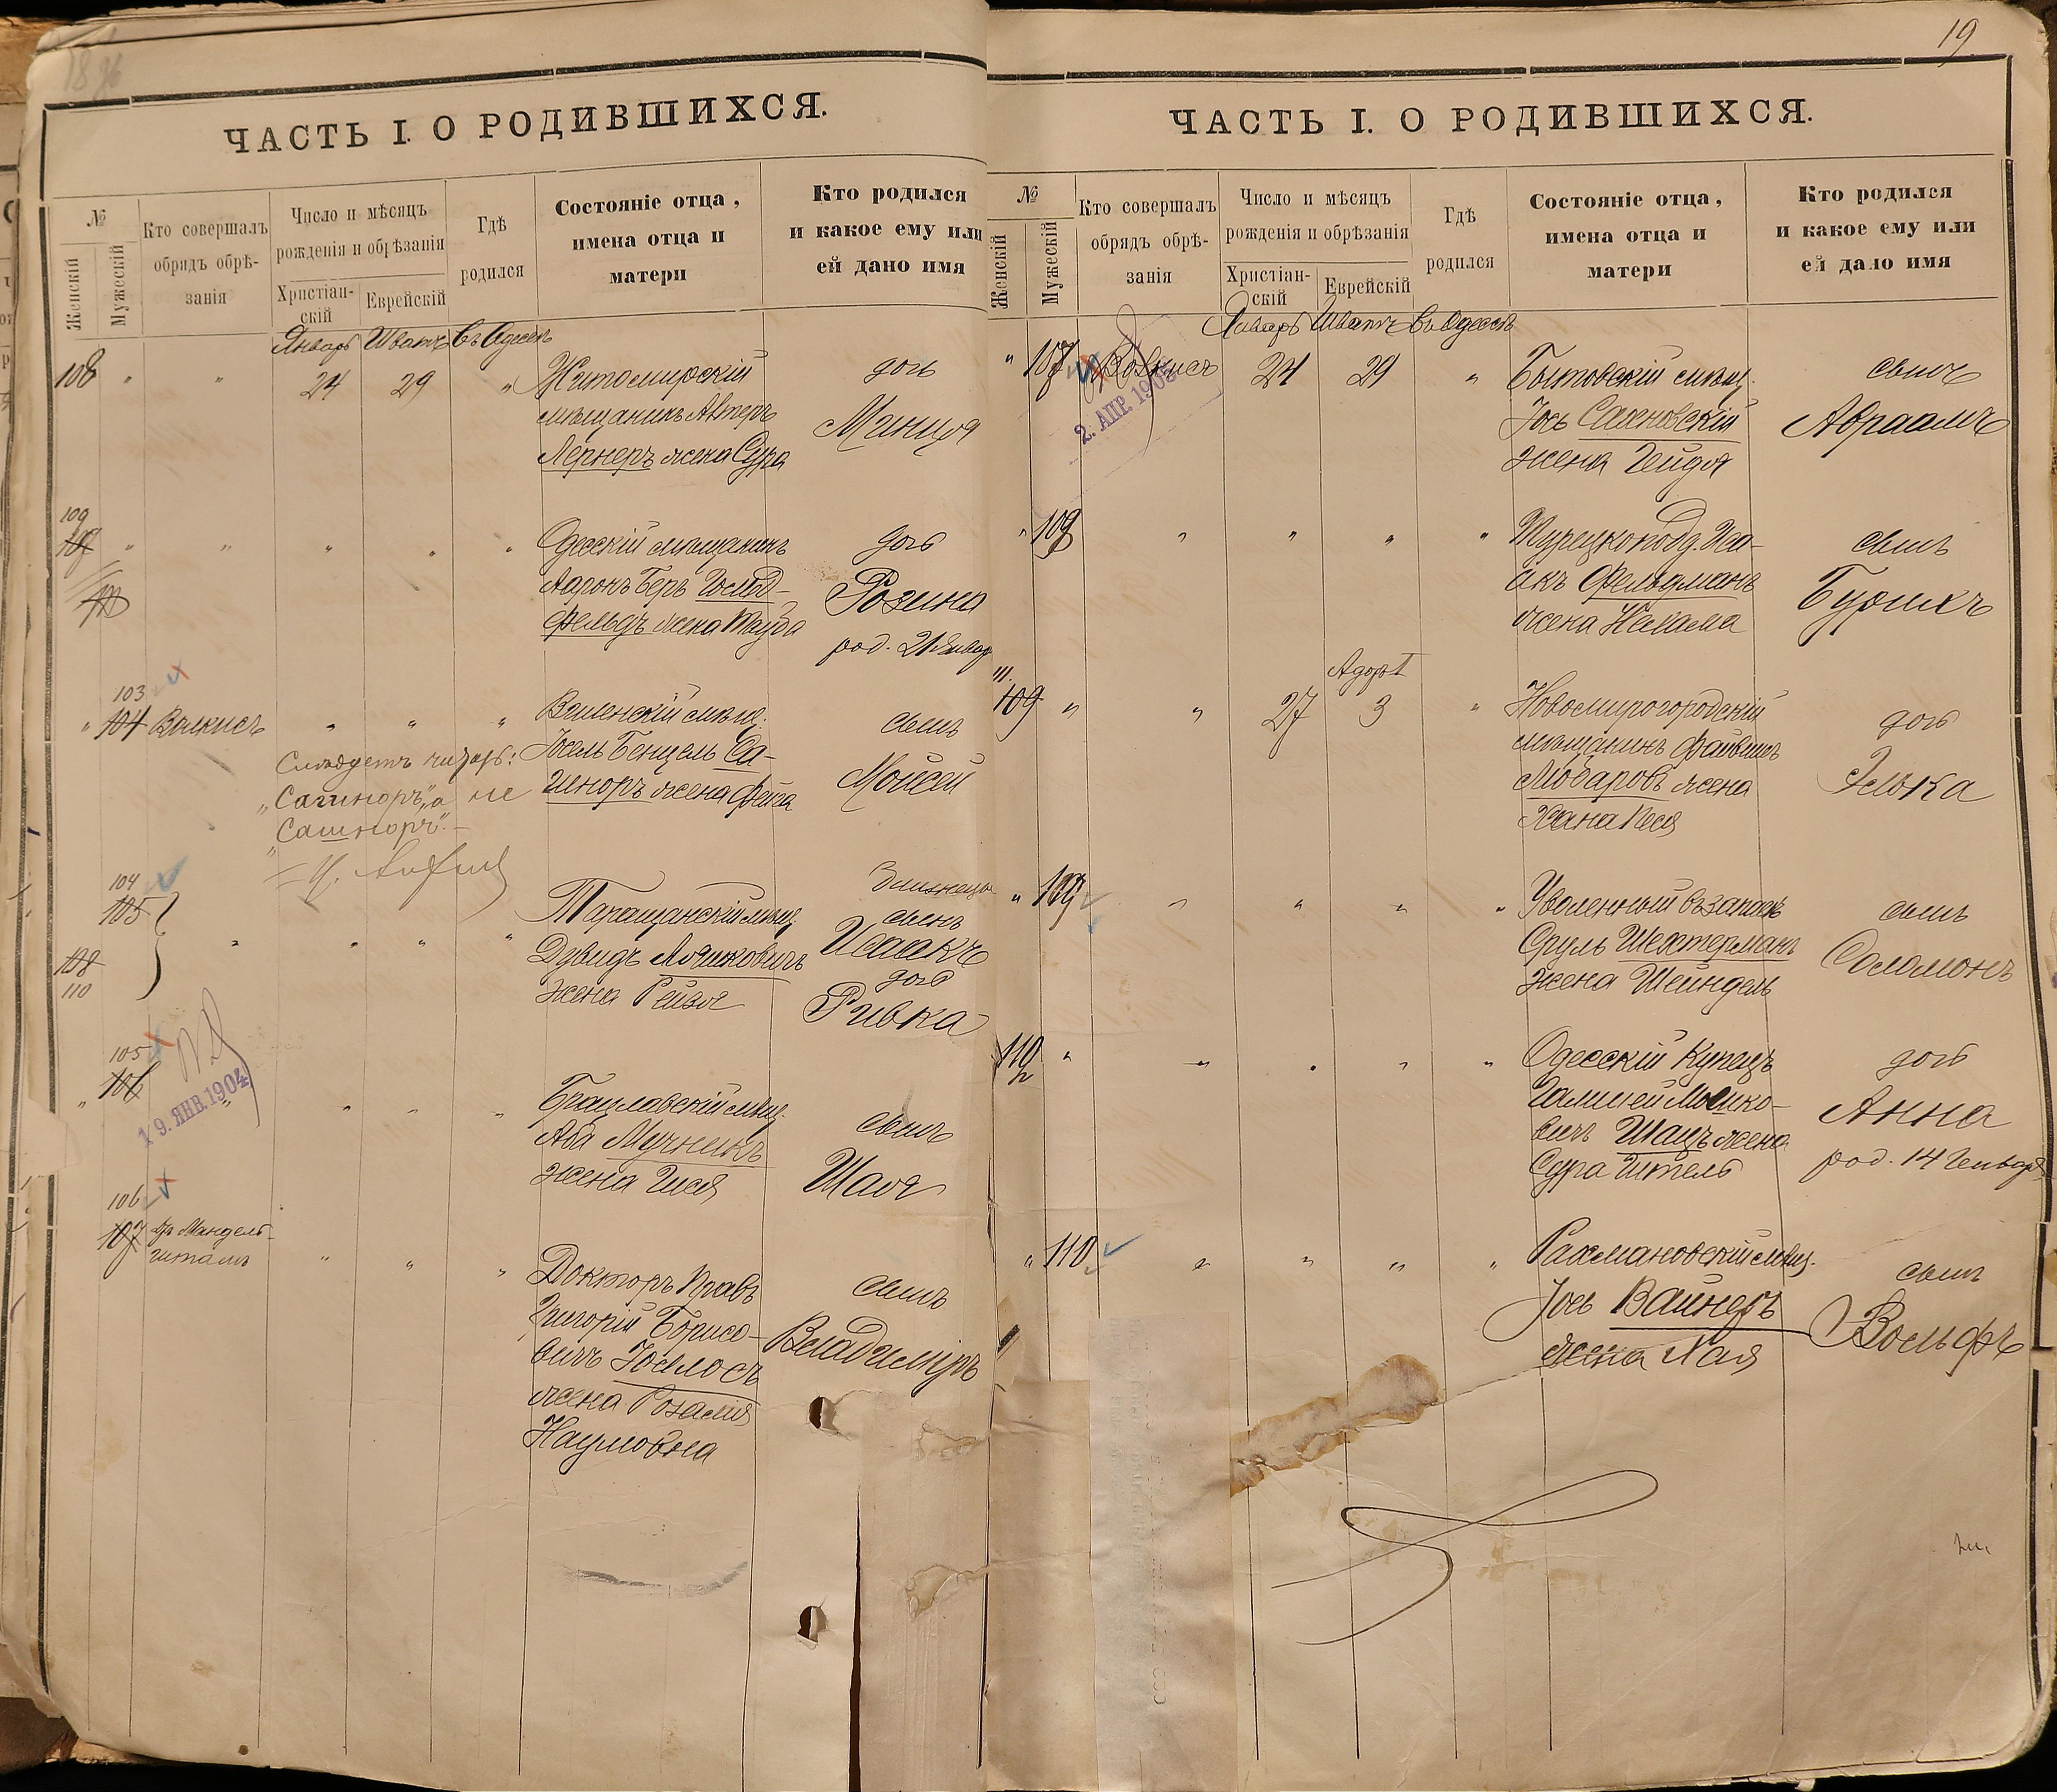 1896
ЧАСТЬ I. О РОДИВШИХСЯ.
№
Женскій
Мужескій
Кто совершалъ
обрядъ обрѣ-
занія
Число и мѣсяцъ
рожденія и обрѣзанія
Христіан-
скій
Еврейскій
Гдѣ
родился
Состояніе отца,
имена отца и
матери
Кто родился
и какое ему или
ей дано имя
Январь Шватъ Въ Одессѣ
108 " " 24 29 " Житомирскій дочь
мѣщанинъ Алтеръ Маниця
Лернеръ жена Сура
109
Одесскій мѣщанинъ дочь
Ааронъ Беръ Гольд- Розина
фельдъ жена Тауба
род. 21 Январ
103
" 104 Волкисъ " " " Виленскій мѣщ. сынъ
Іосель Бенцель Са- Моисей
гиноръ жена Фейга
Слѣдуетъ читать:
"Сагиноръ", а не
"Сашноръ".
104
105
108
110
Близнецы
Таращанскій мѣщ. сынъ
Дувидъ Лошковичъ Исаакъ
жена Рейзя дочь
Ривка
105
106
19. ЯНВ. 1904
Брацлавскій мѣщ. сынъ
Аба Мучникъ
жена Гися Шая
106
107 Др Мандель-
штамъ
Докторъ Правъ сынъ
Григорій Борисо- Владиміръ
вичъ Госмосъ
жена Розалия
Наумовна
19
ЧАСТЬ I. О РОДИВШИХСЯ.
№
Женскій
Мужескій
Кто совершалъ
обрядъ обрѣ-
занія
Число и мѣсяцъ
рожденія и обрѣзанія
Христіан-
скій
Еврейскій
Гдѣ
родился
Состояніе отца,
имена отца и
матери
Кто родился
и какое ему или
ей дано имя
Январь Шватъ Въ Одессѣ
" 107 Волкисъ 24 29 " Бытовскій мѣщ. сынъ
2. АПР. 1908
Іось Сахновскій Авраамъ
жена Гейдя
" 108 " " " " Турецкоподд. Иса- сынъ
акъ Фельдманъ Бурихъ
жена Нехама
Адоръ I
111.
109 " " 27 3 " Новомиргородскій дочь
мѣщанинъ Файвишъ
Любаровъ жена Элька
Хана Песя
" 109 " " " " Уволенный въ запасъ сынъ
Сруль Шехтерманъ Соломонъ
жена Шейндель
110 " " " " " Одесскій Купецъ дочь
Мошко- Анна
вичъ Шацъ жена
Сура Итель род. 14 Генваря
" 110 " " " " Рахмановскій мѣщ. сынъ
Іось Вайнеръ Вольфъ
жена Хая